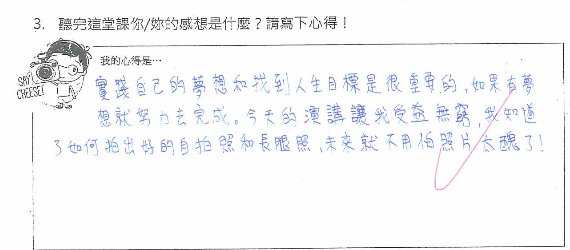 3. 聽完這堂課你/妳的感想是什麼？請寫下心得！
我的心得是…
SAY! CHEESE!
實踐自己的夢想和找到人生目標是很重要的,如果有夢
想就努力去完成。今天的演講讓我受益無窮,我知道
了如何拍出好的自拍照和長腿照,未來就不用怕照片太醜了!